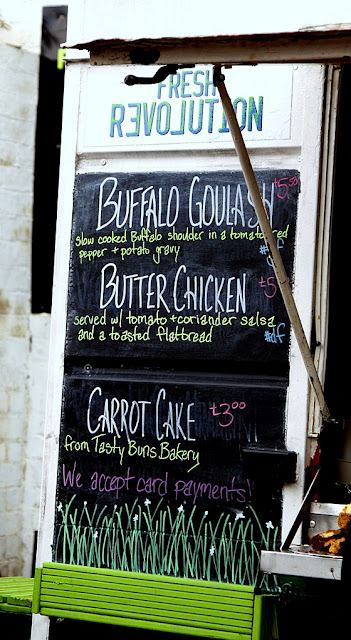 FRESH
REVOLUTION
BUFFALO GOULASH £5.00
slow cooked Buffalo shoulder in a tomato, red
pepper + potato gravy #gf
BUTTER CHICKEN £5
served w/ tomato + coriander salsa
and a toasted flatbread #df
CARROT CAKE £3.00
from Tasty Buns Bakery
We accept card payments!